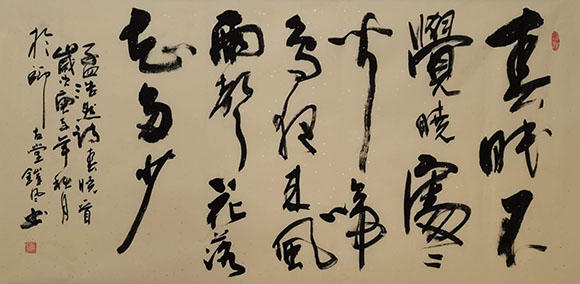 春眠不
覺曉處二
聞啼
鳥夜来風
雨聲花落
知多少
孟浩然詩春曉首
歲次庚子年秋月
於
古堂
書